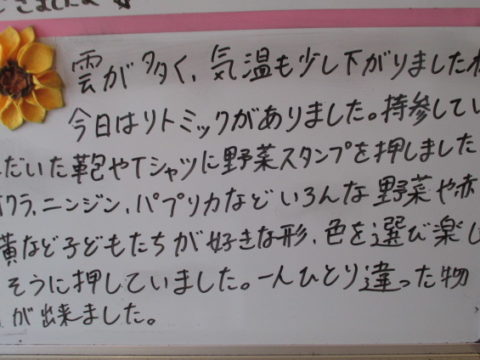 ございましたよ
雲が多く、気温も少し下がりましたね
今日はリトミックがありました。持参してい
ただいた鞄やTシャツに野菜スタンプを押しました
オクラ、ニンジン、パプリカなどいろんな野菜や赤
黄など子どもたちが好きな形、色を選び楽し
そうに押していました。一人ひとり違った物
が出来ました。